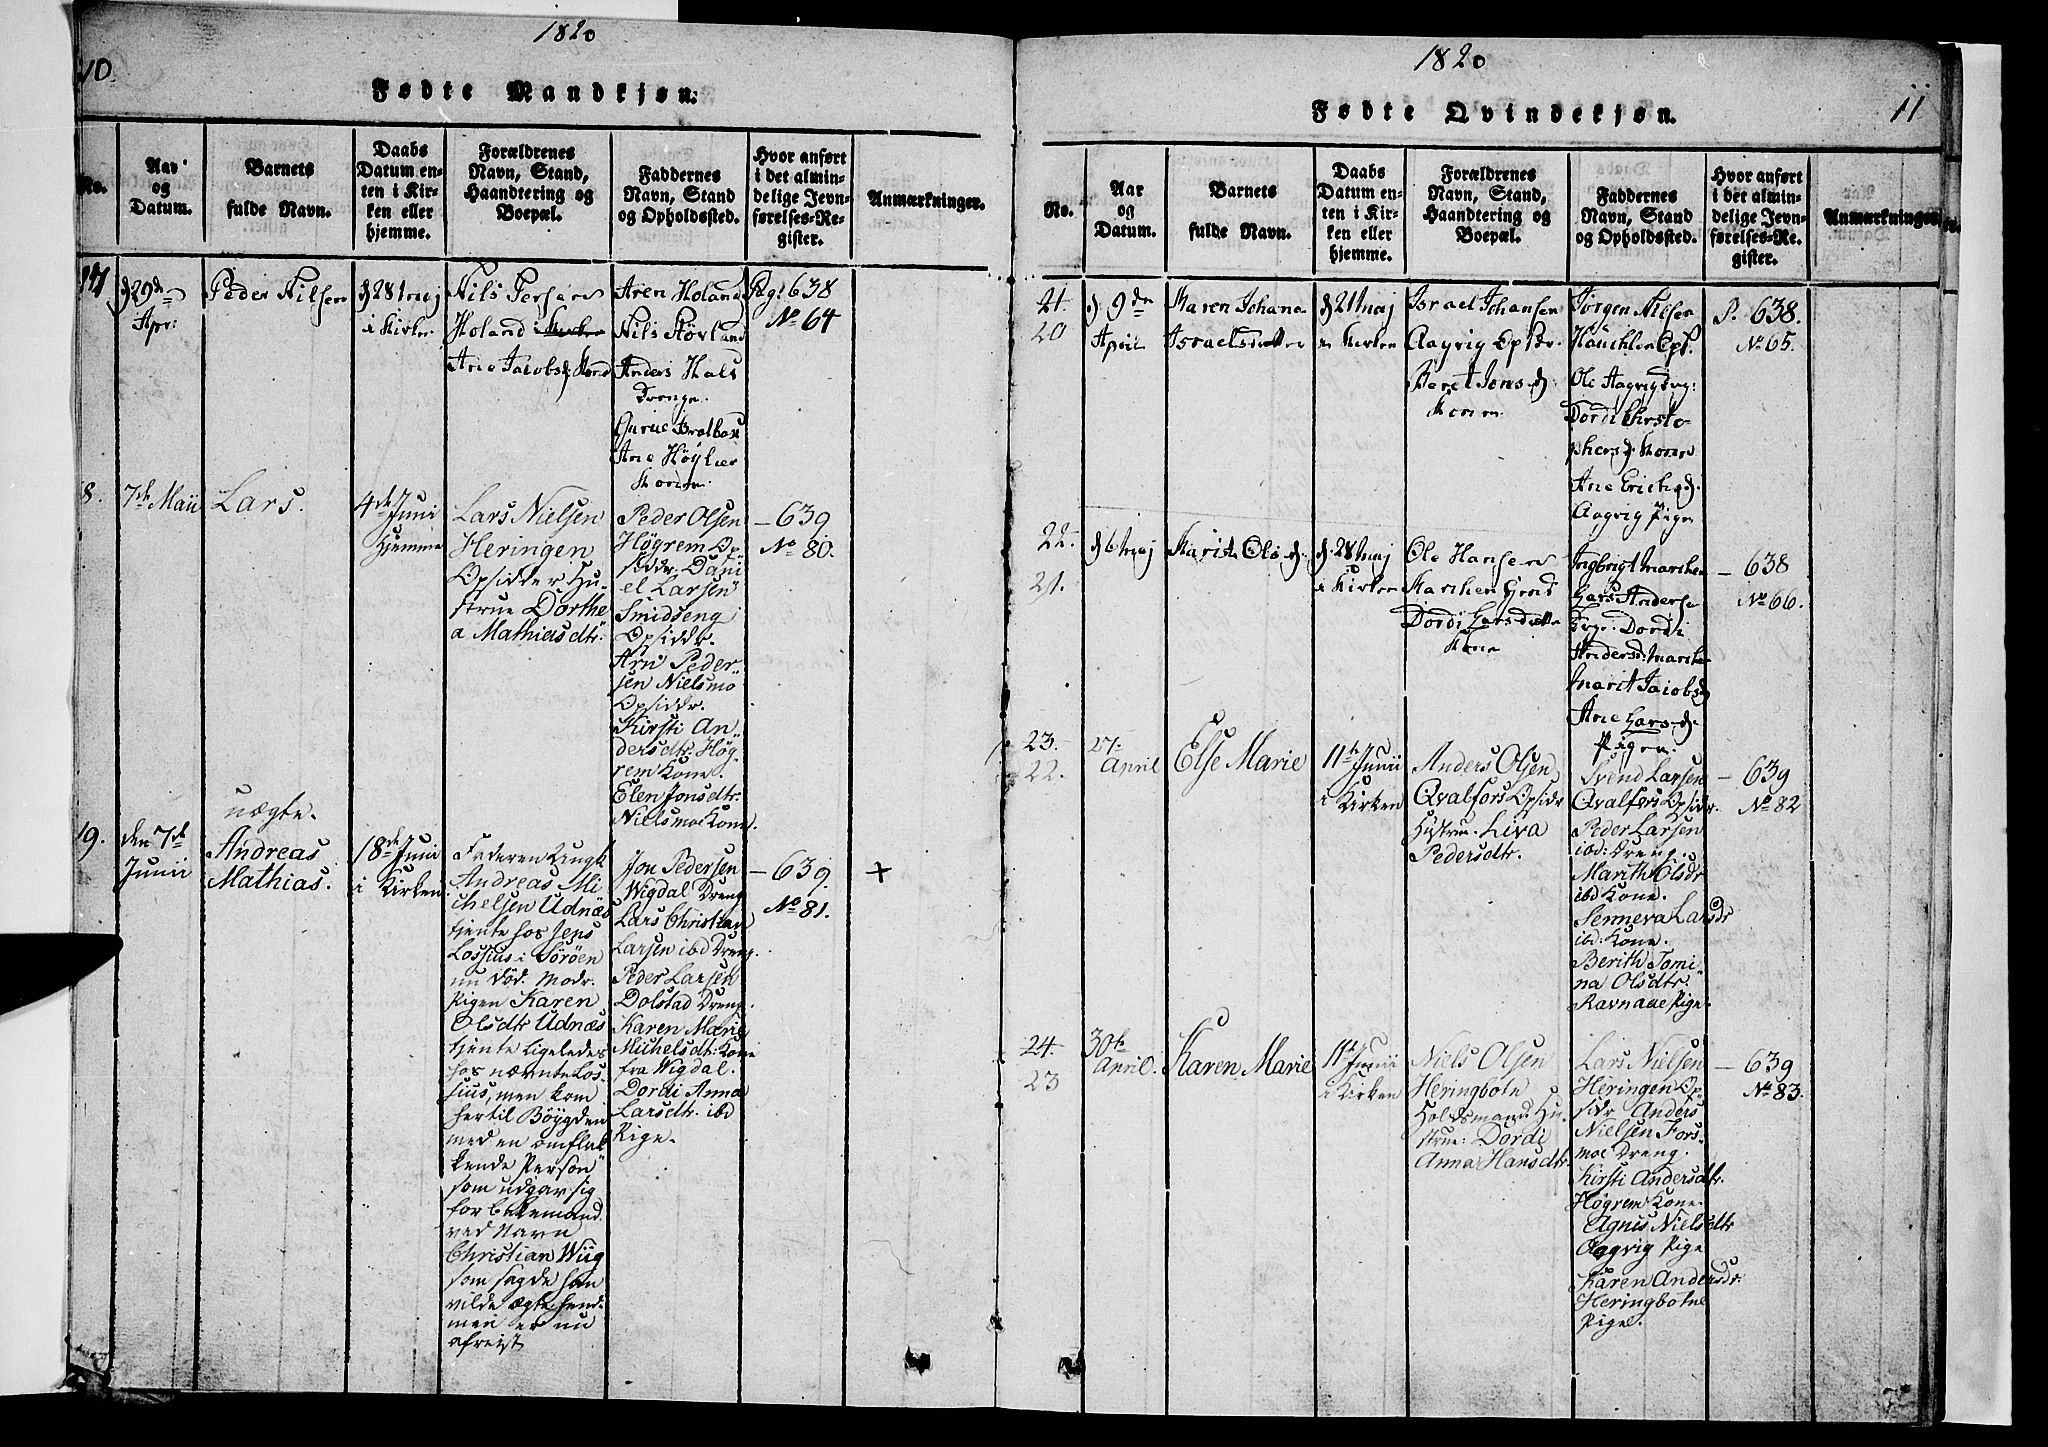 1820
10
Fødte Mandkjøn.
No.
Aar og Datum.
Barnets fulde Navn.
Daabs Datum enten i Kirken eller hjemme.
Forældrenes Navn, Stand, Haandtering og Boepæl.
Faddernes Navn, Stand og Opholdssted.
Hvor anført i det almindelige Jevnførelses-Register.
Anmærkninger.
d 29de
Apr:
Peder Nilsen
d 28 Maj
i Kirken
Nils Persen
Holand
Ane Jacobs d. Kone
Aren Holand
Nils Støvland
Anders Hals
Drenge.
Ane Høylier
Konen
Pag: 638
No 64
8.
7de Maii
Lars.
4de Junii
hjemme
Lars Nielsen
Heringen
Opsidder Hu-
strue Dorthe
a Mathiasdtr.
Peder Olsen
Högrem Op-
siddr. Dani
el Larsen
Smidseng
Opsiddr.
Arn Peder-
sen Nielsmo
Opsiddr.
Kirsti An-
dersdtr: Hög-
rem Kone.
Elen Jonsdtr:
Nielsmoe Kone.
— 639
No 80.
19.
den 7de
Junii
uægte.
Andreas
Mathias.
18de Junii
i Kirken
Faderen Ungk.
Andreas Mi
chelsen Udnæs
tjente hos Jens
Lossius i Sörøen
nu död. Modr.
Pigen Karen
Olsdtr Udnæs
tjente ligeledes
hos nævnte Los-
sius, men kom
hertil Böygden
med en omflak
kende Person
som udgav sig
for
ved Navn
Christian Wiig
som sagde han
vilde ægte hende
men er nu
afreist
Jon Pedersen
Wigdal Dreng
Lars Christian
Larsen ibd Dreng.
Peder Larsen
Dolstad Dreng.
Karen Marie
Michelsdt: Kone
fra Wigdal.
Dordi Anna
Larsdtr. ibd
Pige.
— 639.
No 81.
+
1820
11
Fødte Qvindekjøn.
No.
Aar og Datum.
Barnets fulde Navn.
Daabs Datum enten i Kirken eller hjemme.
Forældrenes Navn, Stand, Haandtering og Boepæl.
Faddernes Navn, Stand og Opholdssted.
Hvor anført i det almindelige Jevnførelses-Register.
Anmærkninger.
21.
20
d. 9de
April
Maren Johana
Israelsdatter
d 21 Maj
i Kirken
Israel Johansen
Aagvig Opsdr.
Beret Jons d:
Konen
Jørgen Nilsen
Ole Aagvig
Dordi Christo
phers d. Kone
Ane Erichs d.
Aagvig Pigen
P. 638.
No 65.
22.
21.
d 6 Maj
Marit Ols d.
d. 28 Maj
i Kirken
Ole Hansen
Dordi Larsdatter
Kone
Ingbrigt
Lars Anders
Dordi
Anders d:
Marit Jacobs d
Ane Lars d.
Pigen.
— 638
No 66.
23.
22.
27.
April
Else Marie
11te Junii
i Kirken
Anders Olsen
Qvalfors Opsidr
Hustrue. Liva
Pedersdtr.
Svend Larsen
Qvalfors Opsidr.
Peder Larsen
ibd: Dreng.
Marith Olsdr
ibd Kone.
Senneva Larsdr
ibd: Kone.
Berith Tomi-
na Olsdtr.
Ravnaae Pige.
— 639
No 82
24.
23
30te
April.
Karen Marie
11te Junii
i Kirken
Niels Olsen
Heringbotn
Holdsmand: Hu-
strue: Dordi
Anna Hansdtr.
Lars Nielsen
Heringen Op-
sidr Anders
Nielsen Fors-
moe Dreng.
Kirsti Andersdtr.
Högrem Kone.
Agnis Nielsdtr
Aagvig Pige
Karen Andersdr.
Heringbotne
Pige.
— 639
No 83.